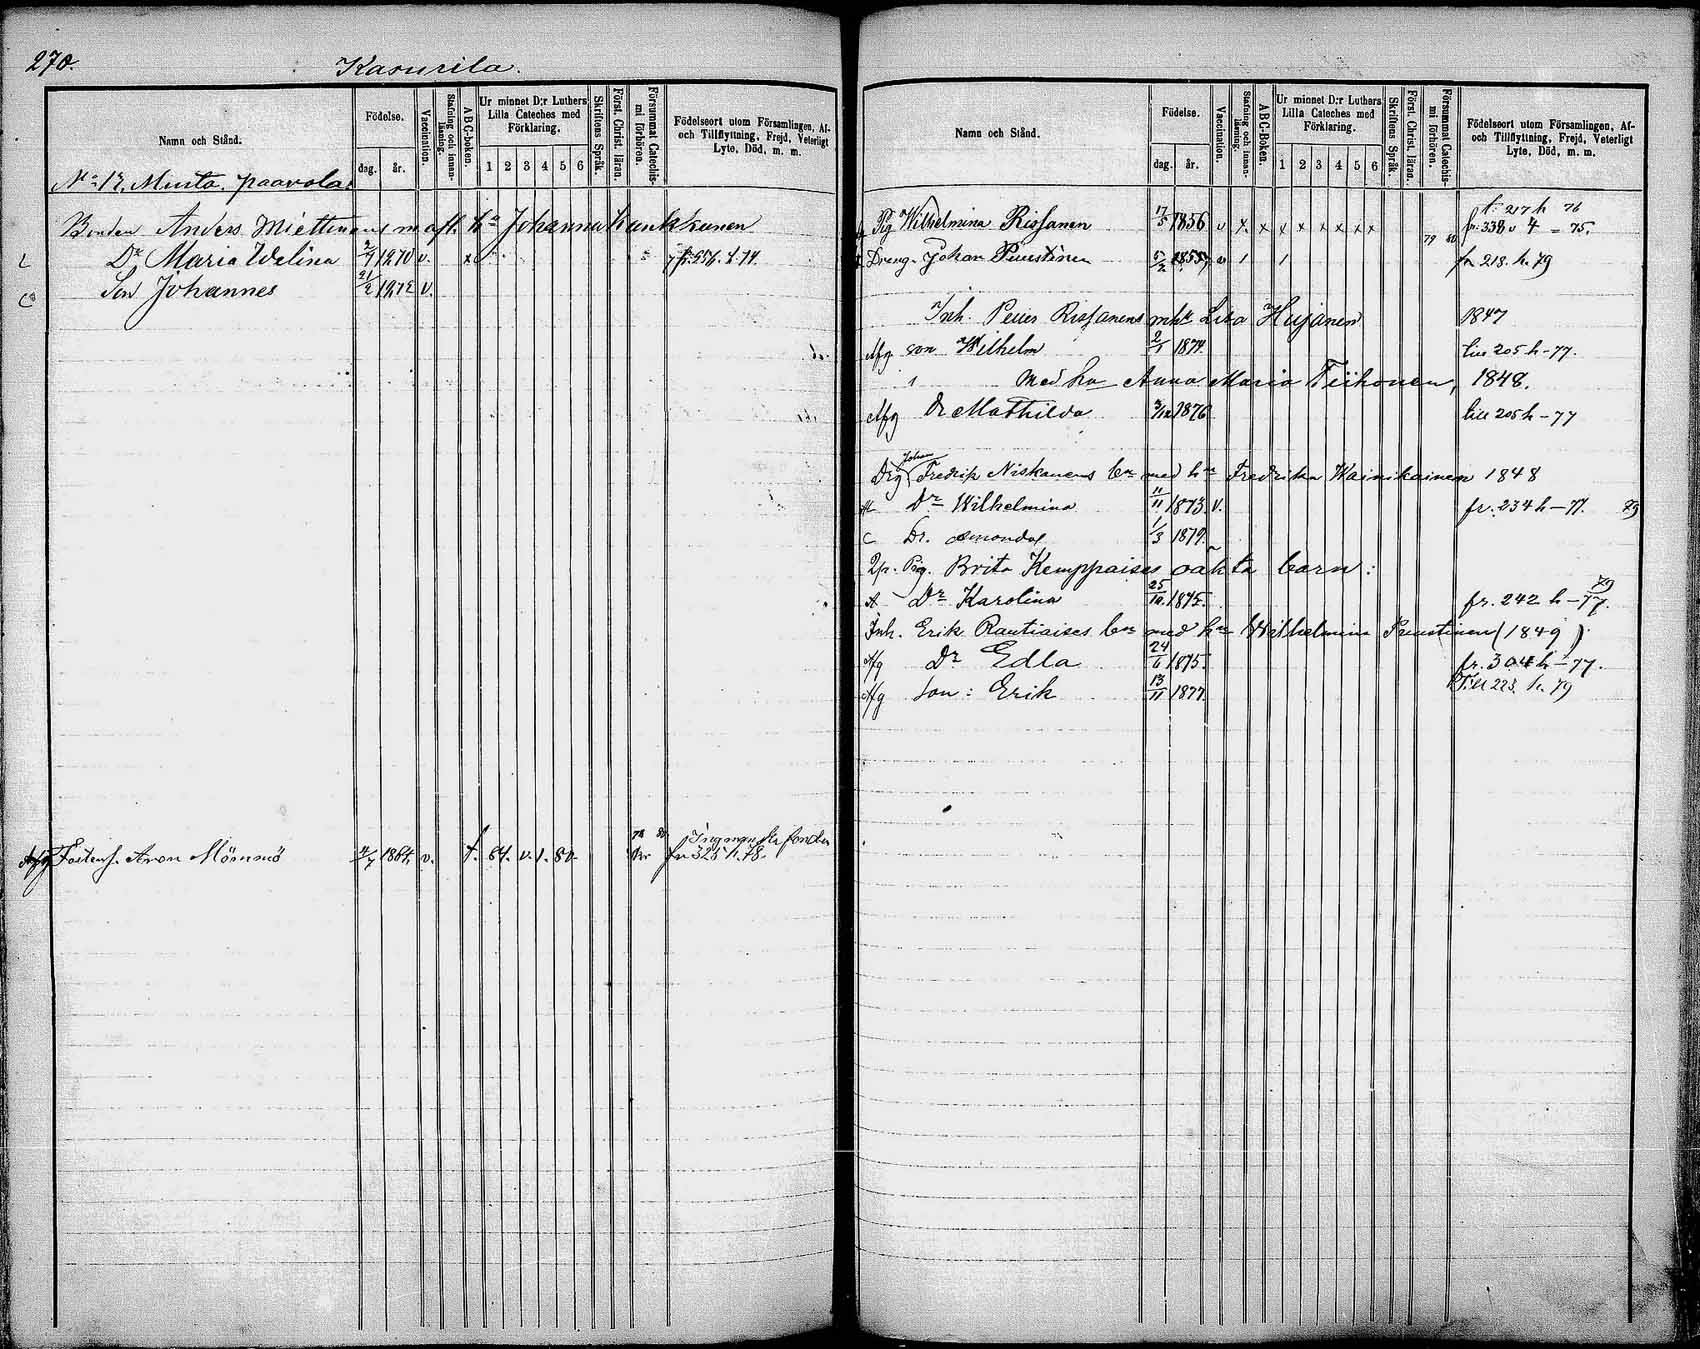 270.
Kasurila.
Namn och Stånd.
Födelse.
dag. år.
Vaccination.
Stafning och innanläsning.
A B C-boken.
Ur minnet D:r Luthers Lilla Cateches med Förklaring.
1 2 3 4 5 6
Skriftens Språk.
Först. Christ. läran.
Försummat Catechismi förhören.
Födelseort utom Församlingen, Af- och Tillflyttning, Frejd, Veterligt Lyte, Död, m. m.
No 12. Musta paavola.
Bonden Anders Miettinens m afl. ha Johanna Kunkkunen
Dr Maria Welina 1870 v. x
Son Johannes 21/2 1872 v.
78 80
Afg Aron Mömmö 1864. v. 1. 80.
fr 328 h. 78.
Namn och Stånd.
Födelse.
dag. år.
Vaccination.
Stafning och innanläsning.
A B C-boken.
Ur minnet D:r Luthers Lilla Cateches med Förklaring.
1 2 3 4 5 6
Skriftens Språk.
Först. Christ. läran.
Försummat Catechismi förhören.
Födelseort utom Församlingen, Af- och Tillflyttning, Frejd, Veterligt Lyte, Död, m. m.
t. 217 h 76
Pig Wilhelmina Rissanen 17/5 1856 v x x x x x x x x fr. 338 v 4 - 75.
79 80
Dreng. Johan Puustinen 5/2 1855 v 1 1 fr 218. h. 79
Inh. Petter Rissanens m hu Lisa Hujanen 1847
Afg son Wilhelm 2/1 1874. till 205 h - 77.
med hu Anna Maria Tiihonen, 1848.
Afg Dr Mathilda 1876 till 205 h - 77
Johan
Drg Fredrik Niskanens bn med hu Fredrika Wainikainen 1848
Dr Wilhelmina 11/11 1873. v. fr. 234 h - 77. 79
C Dr. Amanda 1/3 1879.
Qp. Pig. Brita Kemppaises oäkta barn:
79
Dr Karolina 25/10. 1875. fr. 242 h - 77.
Inh. Erik Rautiaises bn med hu Wilhelmina Puustinen (1849)
Afg Dr Edla 24/6 1875. fr. 304 h - 77.
Afg son: Erik 13/11 1877 Till 223. h. 79